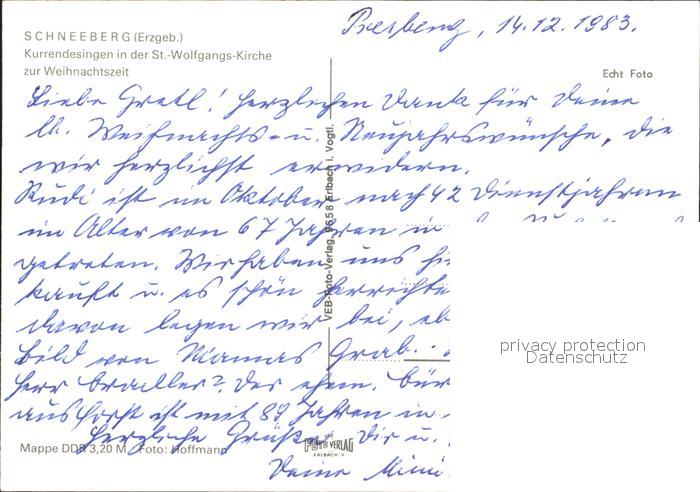 SCHNEEBERG (Erzgeb.)
Kurrendesingen in der St.-Wolfgangs-Kirche
zur Weihnachtszeit
14.12.1983.
Echt Foto
Liebe Gretl! Herzlichen Dank für Deine
lb. Weihnachts- u. Neujahrswünsche, die
wir herzlichst erwidern.
Rudi ist im Oktober nach 42 Dienstjahren
im Alter von 67 Jahren in
getreten. Wir haben uns
kauft u. es schön
davon legen wir bei,
Bild von Mamas Grab.
Herr Der ehem.
ist mit 89 Jahren
Herzliche Grüße Dir u.
Deine Mimi
VEB-Foto-Verlag, 9658 Erlbach i. Vogtl.
privacy protection
Datenschutz
Mappe DDR 3,20 M Foto: Hoffmann
FOTO VERLAG
ERLBACH · V